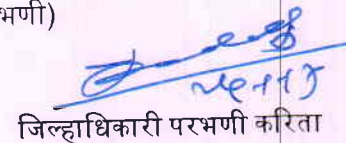 भणी)
जिल्हाधिकारी परभणी करिता